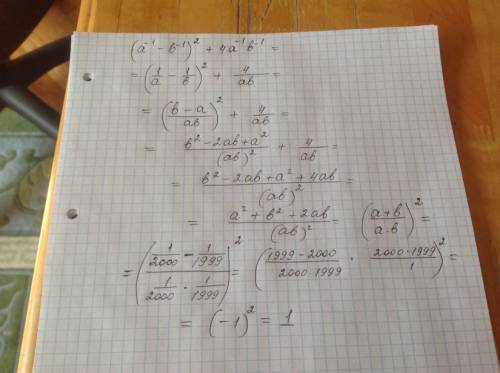 (a⁻¹ - b⁻¹)² + 4a⁻¹b⁻¹ =
= (1/a - 1/b)² + 4/ab =
= ((b - a)/ab)² + 4/ab =
= (b² - 2ab + a²)/(ab)² + 4/ab =
= (b² - 2ab + a² + 4ab)/(ab)² =
= (a² + b² + 2ab)/(ab)² = ((a+b)/(a·b))² =
= ((1/2000 - 1/1999)/(1/2000 · 1/1999))² = ((1999 - 2000)/(2000·1999) · (2000·1999)/1)² =
= (-1)² = 1